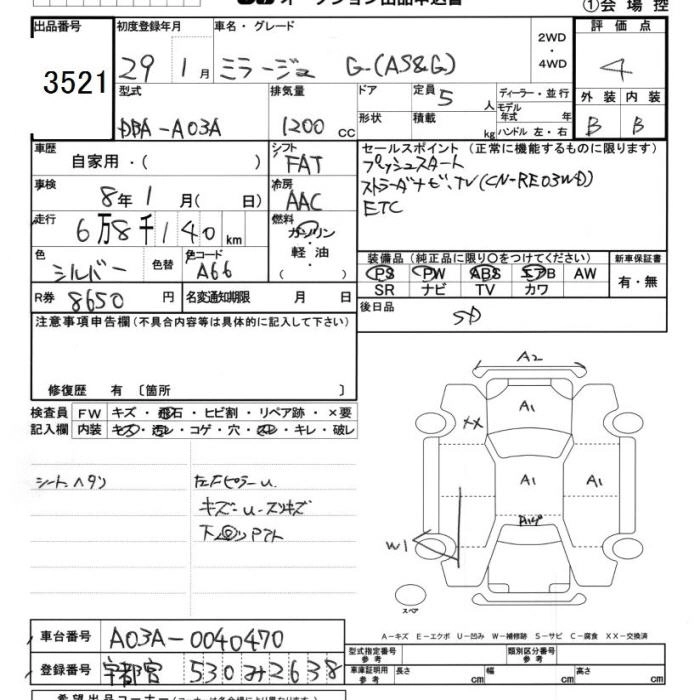 オークション出品申込書
①会場控
出品番号 初度登録年月 車名・グレード 2WD・4WD 評価点
3521 29年1月 ミラージュ G-(AS&G) 4
型式 排気量 ドア 定員 5人 ディーラー・並行 外装 内装
DBA-A03A 1200cc 形状 積載 kg モデル年式 年 ハンドル 左・右 B B
車歴 自家用・( ) シフト FAT セールスポイント (正常に機能するものに限ります)
プッシュスタート
車検 8年1月( 日) 冷房 AAC ストラーダナビ、TV(CN-RE03WD)
ETC
走行 6万8千140km 燃料 ガソリン・軽油・( )
色 シルバー 色替 色コード A66 装備品(純正品に限り〇をつけてください) 新車保証書
PS PW ABS エアB AW 有・無
SR ナビ TV カワ
R券 8650円 名変通知期限 月 日 後日品 SD
注意事項申告欄(不具合内容等は具体的に記入して下さい)
修復歴 有〔箇所 〕
検査員記入欄 FW キズ・飛石・ヒビ割・リペア跡・×要
内装 キズ・汚レ・コゲ・穴・ヌレ・キレ・破レ
シートヘタリ 左Fピラーu.
キズ-u-スリキズ
A2
A1
XX
A1 A1
W1
スペア
A-キズ E-エクボ U-凹み W-補修跡 S-サビ C-腐食 XX-交換済
車台番号 A03A-0040470
登録番号 宇都宮 530み2638
型式指定番号 参考 類別区分番号 参考
車庫証明用 参考 長さ cm 幅 cm 高さ cm
希望出品コーナー